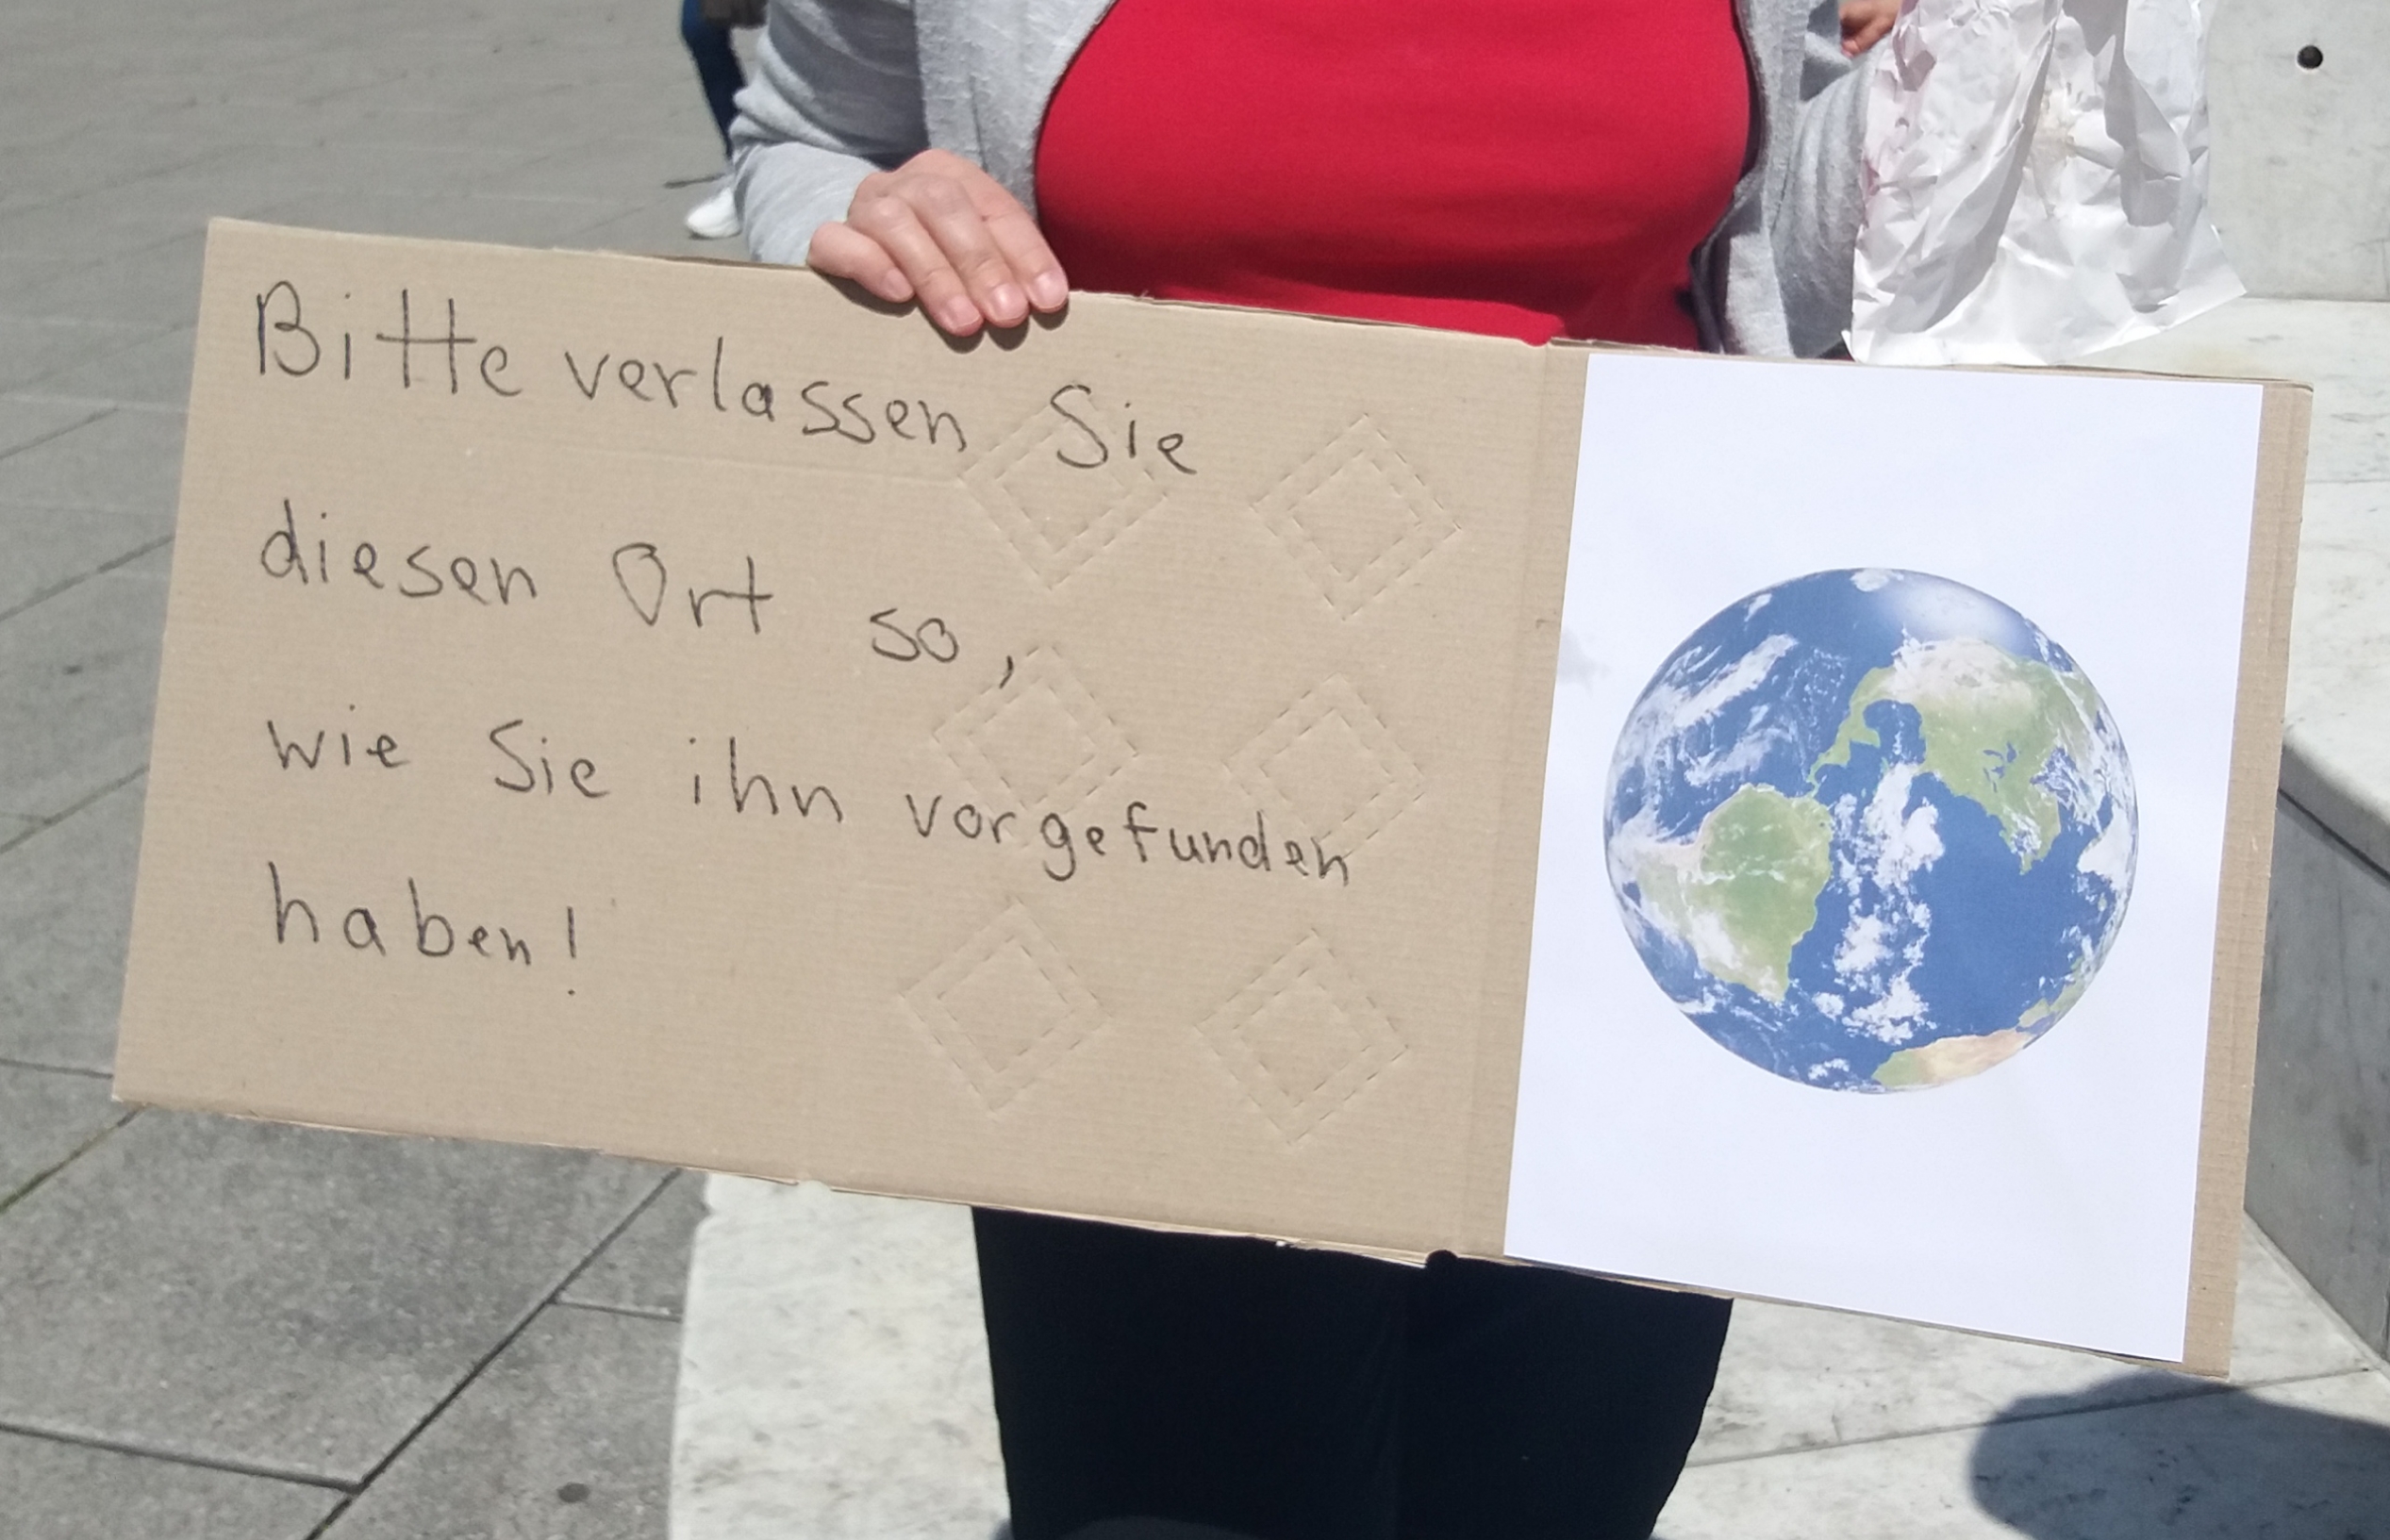 Bitte verlassen Sie
diesen Ort so,
wie Sie ihn vorgefunden
haben!